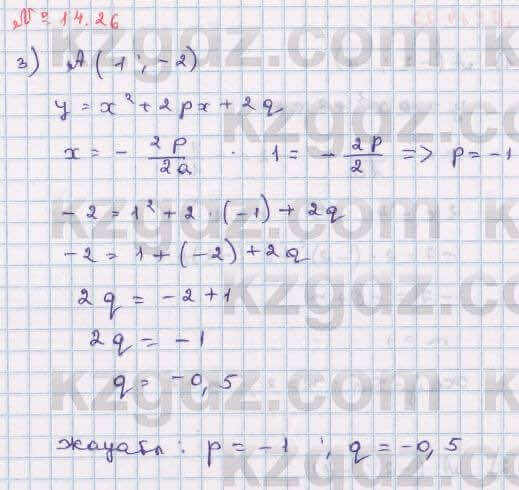 № 14.26
3) A(1; -2)
y = x² + 2px + 2q
x = - 2p/2a . 1 = - 2p/2 => p = -1
-2 = 1² + 2 · (-1) + 2q
-2 = 1 + (-2) + 2q
2q = -2 + 1
2q = -1
q = -0,5
жауабы: p = -1; q = -0,5
kzgdz.com